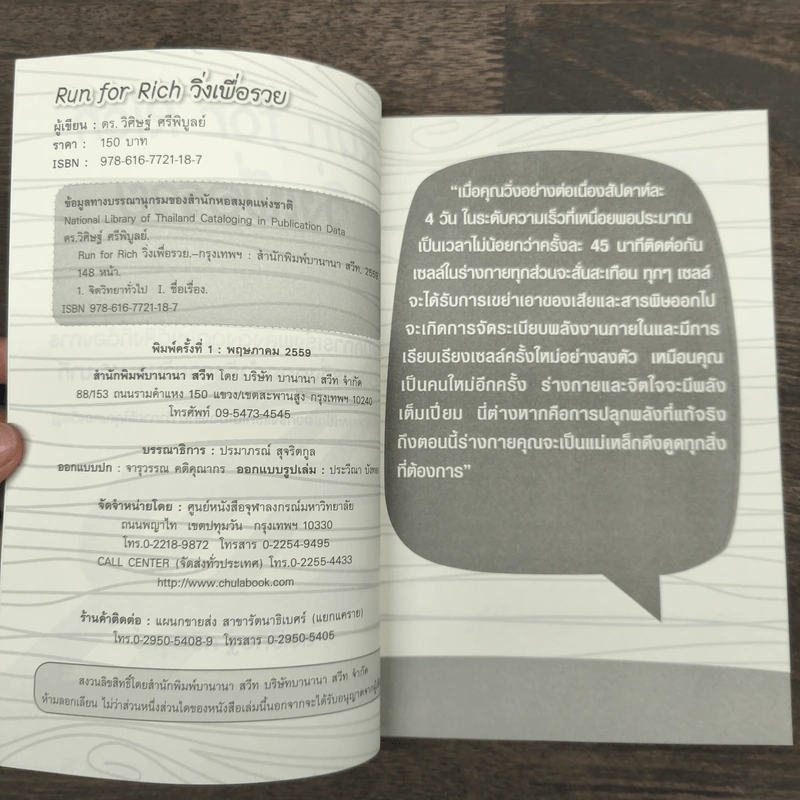 Run for Rich วิ่งเพื่อรวย
ผู้เขียน : ดร. วิศิษฐ์ ศรีพิบูลย์
ราคา : 150 บาท
ISBN : 978-616-7721-18-7
ข้อมูลทางบรรณานุกรมของสำนักหอสมุดแห่งชาติ
National Library of Thailand Cataloging in Publication Data
ดร.วิศิษฐ์ ศรีพิบูลย์.
Run for Rich วิ่งเพื่อรวย.–กรุงเทพฯ : สำนักพิมพ์บานานา สวีท, 2559
148 หน้า.
1. จิตวิทยาทั่วไป I. ชื่อเรื่อง.
ISBN 978-616-7721-18-7
พิมพ์ครั้งที่ 1 : พฤษภาคม 2559
สำนักพิมพ์บานานา สวีท โดย บริษัท บานานา สวีท จำกัด
88/153 ถนนรามคำแหง 150 แขวง/เขตสะพานสูง กรุงเทพฯ 10240
โทรศัพท์ 09-5473-4545
บรรณาธิการ : ปรมาภรณ์ สุจริตกูล
ออกแบบปก : จารุวรรณ คติคุณากร ออกแบบรูปเล่ม : ประวีณา
จัดจำหน่ายโดย : ศูนย์หนังสือจุฬาลงกรณ์มหาวิทยาลัย
ถนนพญาไท เขตปทุมวัน กรุงเทพฯ 10330
โทร.0-2218-9872 โทรสาร 0-2254-9495
CALL CENTER (จัดส่งทั่วประเทศ) โทร.0-2255-4433
http://www.chulabook.com
ร้านค้าติดต่อ : แผนกขายส่ง สาขารัตนาธิเบศร์ (แยกแคราย)
โทร.0-2950-5408-9 โทรสาร 0-2950-5405
สงวนลิขสิทธิ์โดยสำนักพิมพ์บานานา สวีท บริษัทบานานา สวีท จำกัด
ห้ามลอกเลียน ไม่ว่าส่วนหนึ่งส่วนใดของหนังสือเล่มนี้นอกจากจะได้รับอนุญาต
“เมื่อคุณวิ่งอย่างต่อเนื่องสัปดาห์ละ
4 วัน ในระดับความเร็วที่เหนื่อยพอประมาณ
เป็นเวลาไม่น้อยกว่าครั้งละ 45 นาทีติดต่อกัน
เซลล์ในร่างกายทุกส่วนจะสั่นสะเทือน ทุกๆ เซลล์
จะได้รับการเขย่าเอาของเสียและสารพิษออกไป
จะเกิดการจัดระเบียบพลังงานภายในและมีการ
เรียบเรียงเซลล์ครั้งใหม่อย่างลงตัว เหมือนคุณ
เป็นคนใหม่อีกครั้ง ร่างกายและจิตใจจะมีพลัง
เต็มเปี่ยม นี่ต่างหากคือการปลุกพลังที่แท้จริง
ถึงตอนนี้ร่างกายคุณจะเป็นแม่เหล็กดึงดูดทุกสิ่ง
ที่ต้องการ”